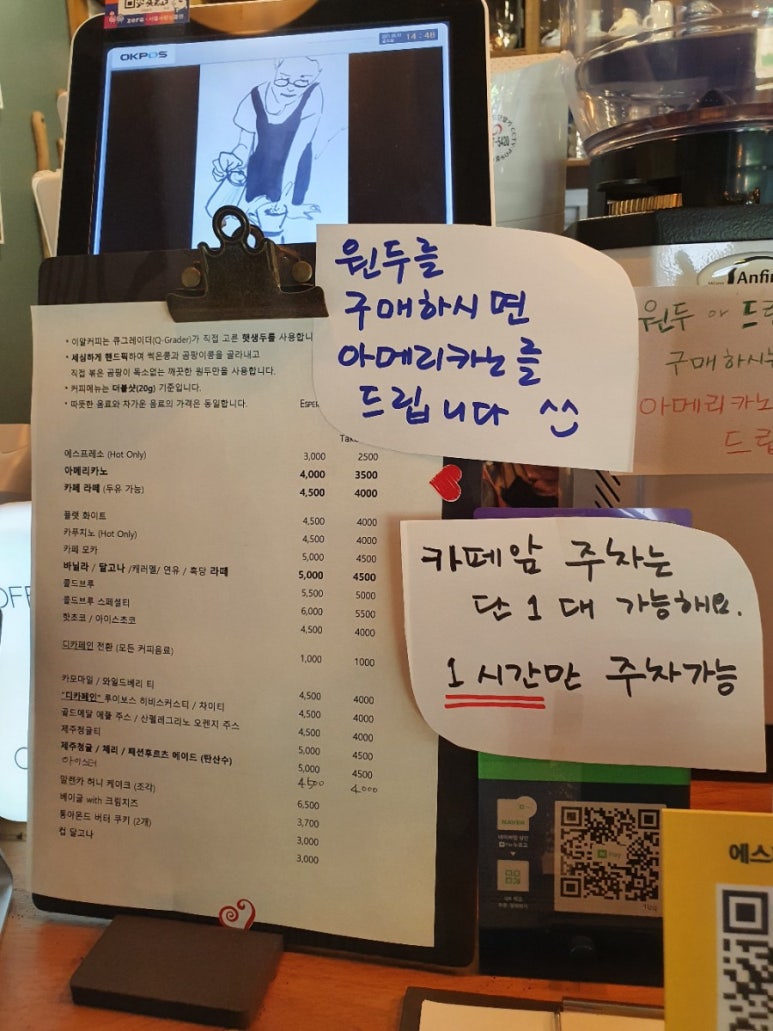 zero
OKPOS
14:48
원두를
구매하시면
아메리카노를
드립니다 ^^
Anfi
원두 or 드
구매하시
아메리카노
드립
* 이알커피는 큐그레이더(Q-Grader)가 직접 고른 햇생두를 사용합니
* 세심하게 핸드픽하여 썩은콩과 곰팡이콩을 골라내고
직접 볶은 곰팡이 독소없는 깨끗한 원두만을 사용합니다.
* 커피메뉴는 더블샷(20g) 기준입니다.
* 따뜻한 음료와 차가운 음료의 가격은 동일합니다.
ESPER
Tak
에스프레소 (Hot Only) 3,000 2500
아메리카노 4,000 3500
카페 라떼 (두유 가능) 4,500 4000
플랫 화이트 4,500 4000
카푸치노 (Hot Only) 4,500 4000
카페 모카 5,000 4500
바닐라 / 달고나 /캐러멜/ 연유 / 흑당 라떼 5,000 4500
콜드브루 5,500 5000
콜드브루 스페셜티 6,000 5500
핫초코 / 아이스초코 4,500 4000
디카페인 전환 (모든 커피음료) 1,000 1000
카모마일 / 와일드베리 티 4,500 4000
"디카페인" 루이보스 히비스커스티 / 차이티 4,500 4000
골드메달 애플 주스 / 산펠레그리노 오렌지 주스 4,500 4000
제주청귤티 5,000 4500
제주청귤 / 체리 / 패션후르츠 에이드 (탄산수) 5,000 4500
아이스티 4500 4000
말렌카 허니 케이크 (조각) 6,500
베이글 with 크림치즈 3,700
통아몬드 버터 쿠키 (2개) 3,000
컵 달고나 3,000
카페앞 주차는
단 1대 가능해요.
1시간만 주차가능
NAVER
N Pay
에스